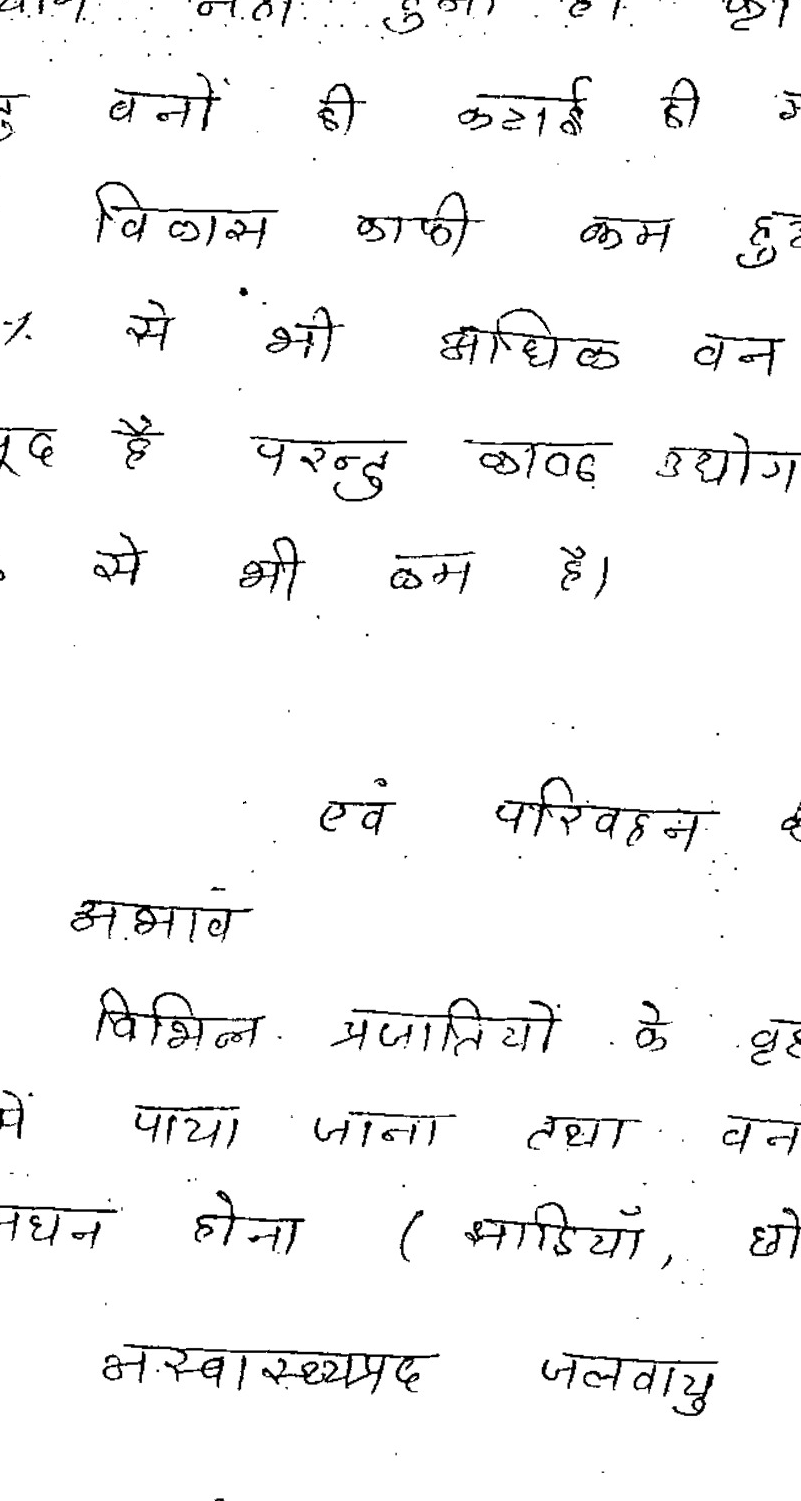 नहीं हुआ है।
वनों की कटाई की
विकास काफी कम
से भी अधिक वन
है परन्तु काष्ठ उद्योग
से भी कम है।
एवं परिवहन
अभाव
विभिन्न प्रजातियों के
में पाया जाना तथा वन
सघन होना ( झाडियाँ,
अस्वास्थ्यप्रद जलवायु